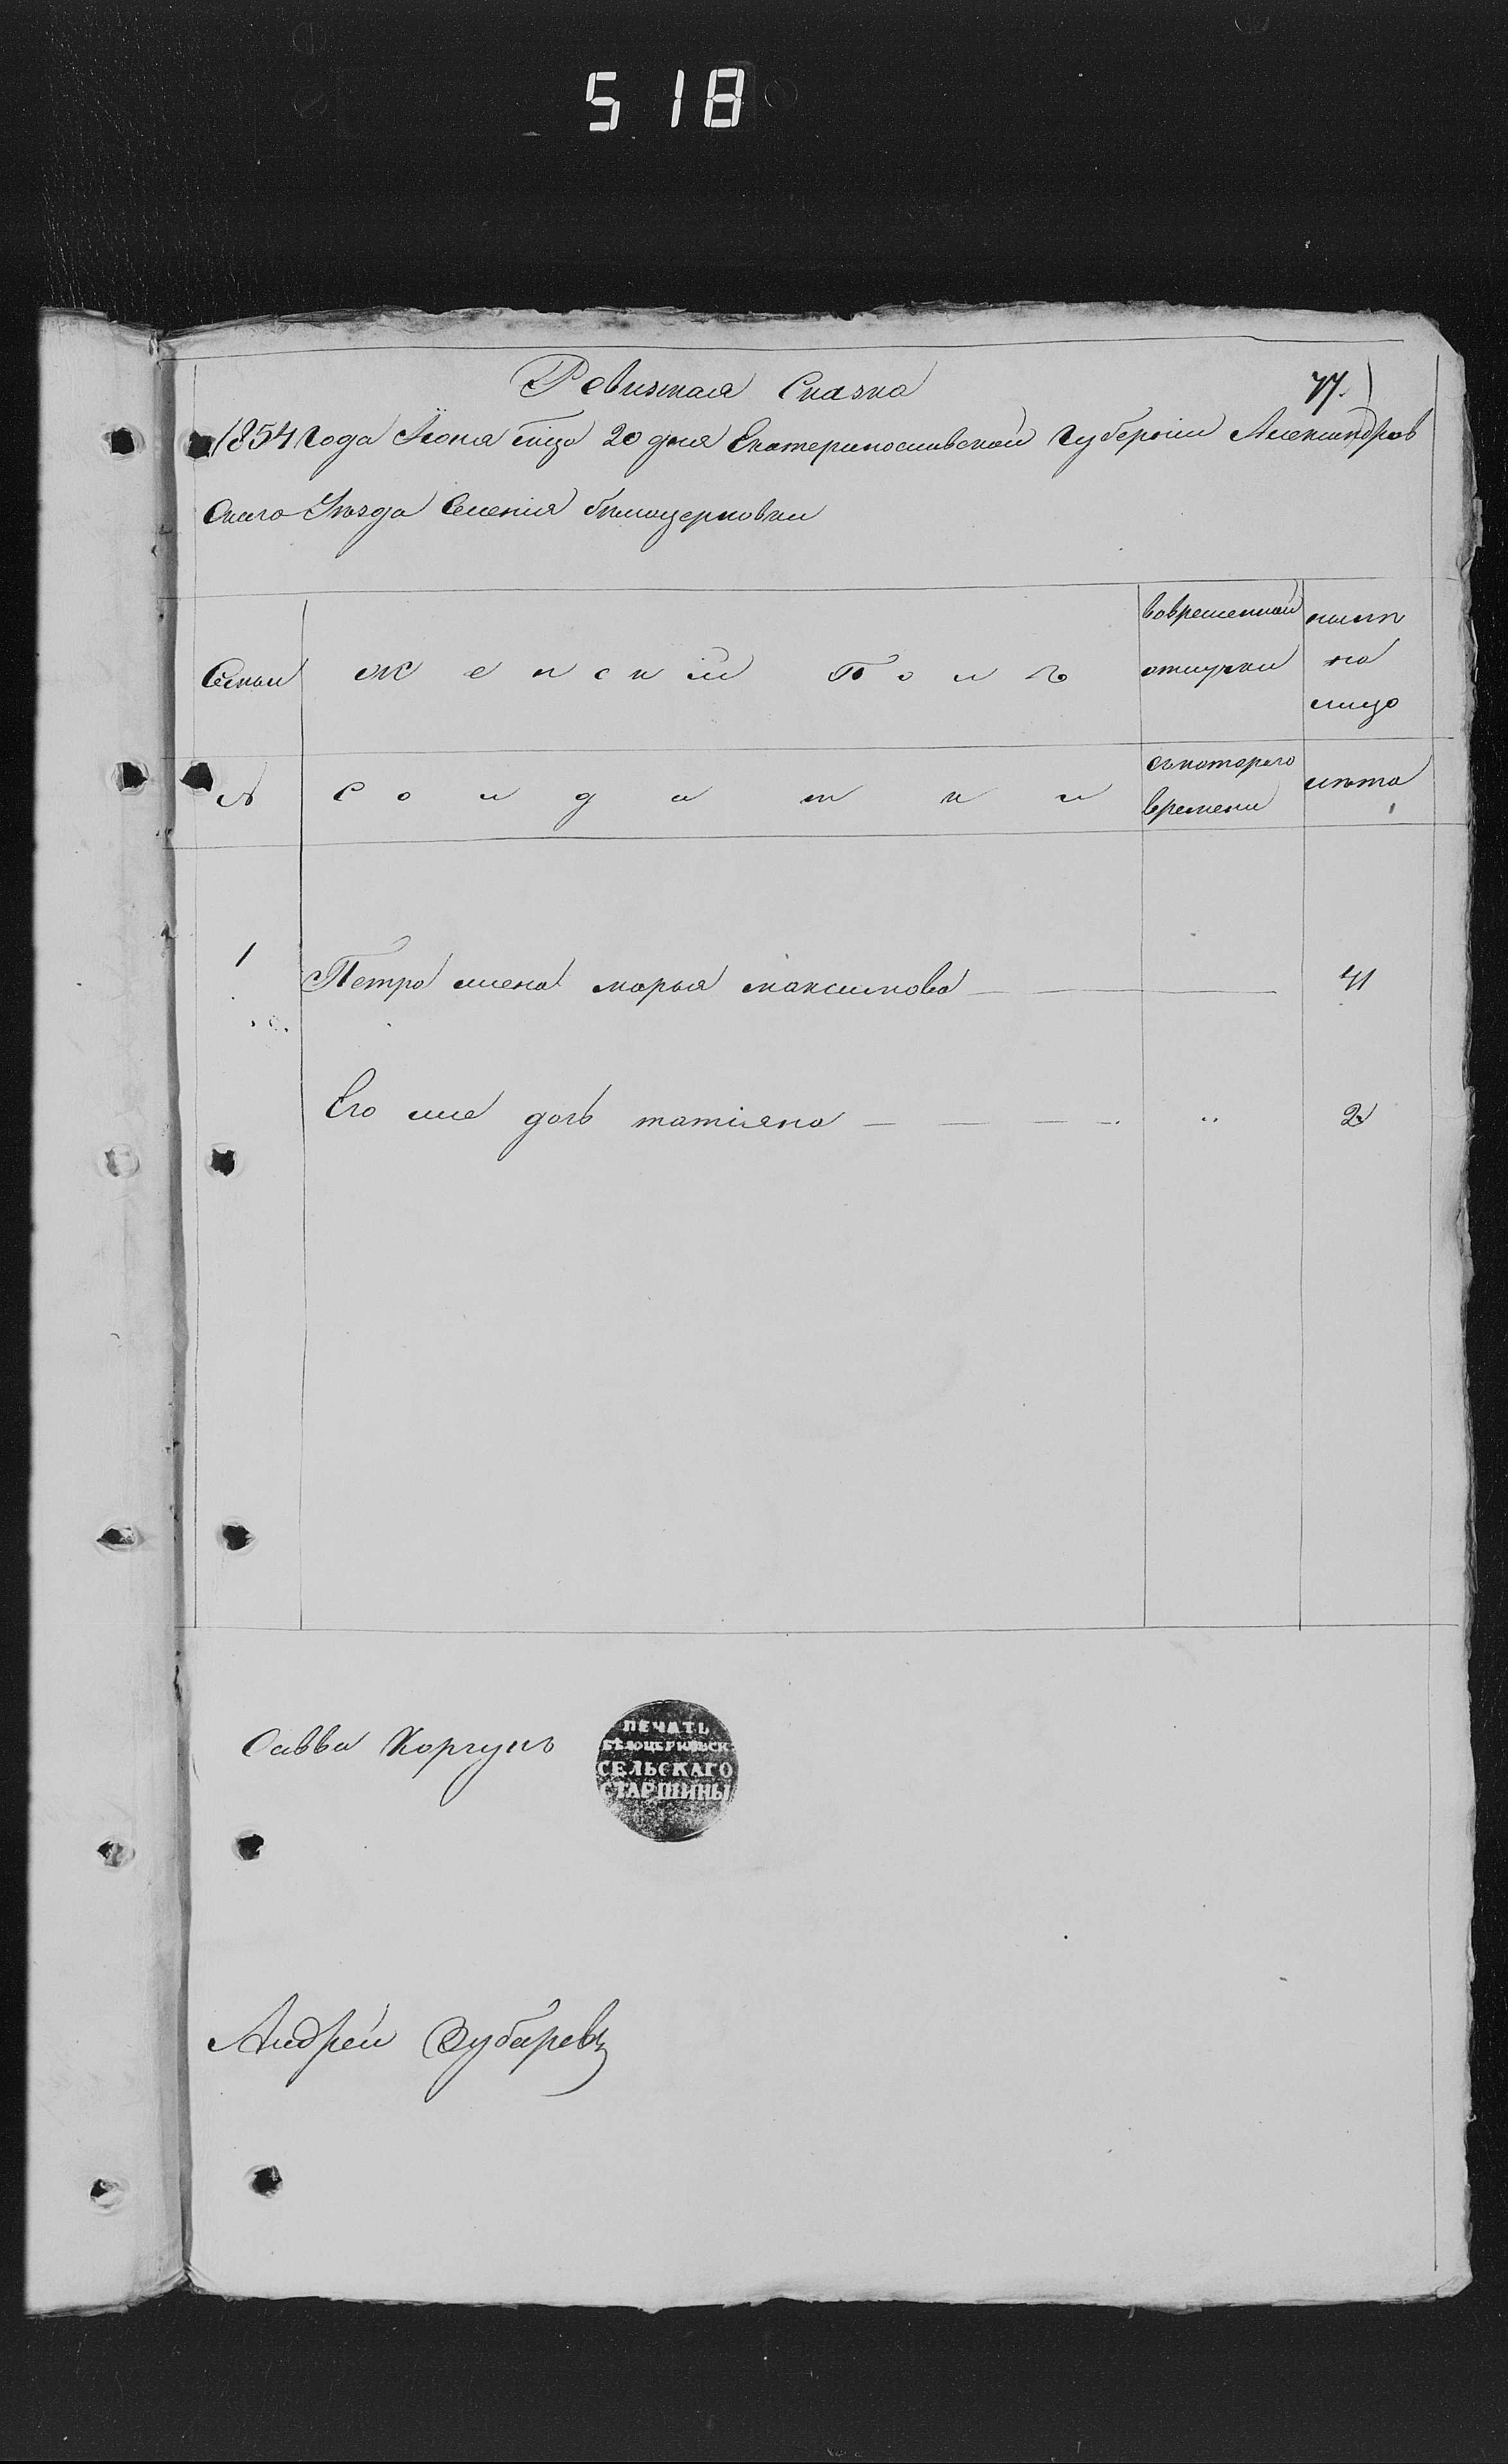 518
Ревизкая Сказка
77.
1854 года Іюня м͠ца 20 дня Екатеринославской губерніи Александров
скаго Уѣзда Селенія белоцерковки
Семьи
Женскій Полъ
вовременной
отлучки
нынѣ
на
лицо
№
Солдатки
съкотораго
времени
лѣта
1
Петра жена марья максимова
41
Его же дочь татіяна
"
2
Савва Коргунъ
ПЕЧАТЬ
БѢЛОЦЕРКОВСК
СЕЛЬСКАГО
СТАРШИНЫ
Андрей Зубаревъ